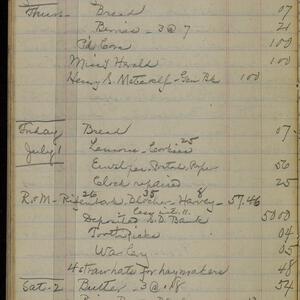 Thurs- Bread 07
Berries - 3@7 21
Pd Cora 100
Miss Harold 100
Henry S. Metcalf - 100
Friday Bread 07
July 1 Lemons - Cookies 25
Envelopes, Postal, Paper 56
Clock repaired 25
26 35 8
R & M - - Harvey - 57.46
Deposited S.D. Bank 5000
Toothpicks 04
05
4 straw hats for haymakers 48
Sat - 2 Butter - 3@18 54